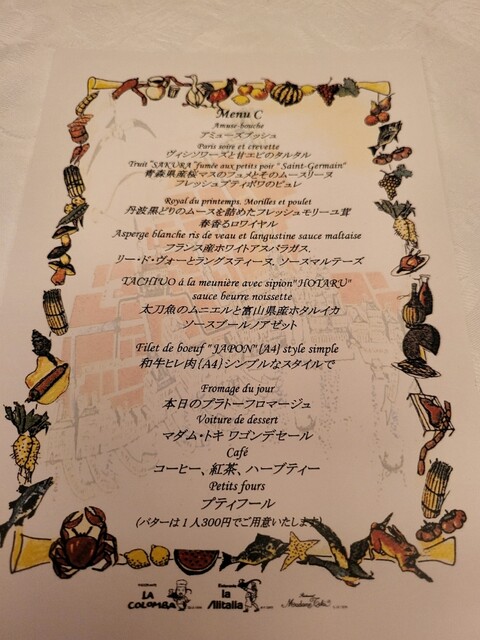 Menu C
Amuse-bouche
アミューズブッシュ
Paris soire et crevette
ヴィシソワーズと甘エビのタルタル
Truit "SAKURA" fumée aux petits pois " Saint-Germain"
青森県産桜マスのフュメとそのムースリーヌ
フレッシュプティポワのピュレ
Royal du printemps, Morilles et poulet
丹波黒どりのムースを詰めたフレッシュモリーユ茸
春香るロワイヤル
Asperge blanche ris de veau et langustine sauce maltaise
フランス産ホワイトアスパラガス,
リー・ド・ヴォーとラングスティーヌ、ソースマルテーズ
TACHIUO á la meunière avec sipion"HOTARU"
sauce beurre noissette
太刀魚のムニエルと富山県産ホタルイカ
ソースブールノアゼット
Filet de boeuf "JAPON"{A4} style simple
和牛ヒレ肉{A4}シンプルなスタイルで
Fromage du jour
本日のプラトーフロマージュ
Voiture de dessert
マダム・トキ ワゴンデセール
Café
コーヒー、紅茶、ハーブティー
Petits fours
プティフール
(バターは１人300円でご用意いたします)
LA COLOMBA
la Alitalia
Madame Toki